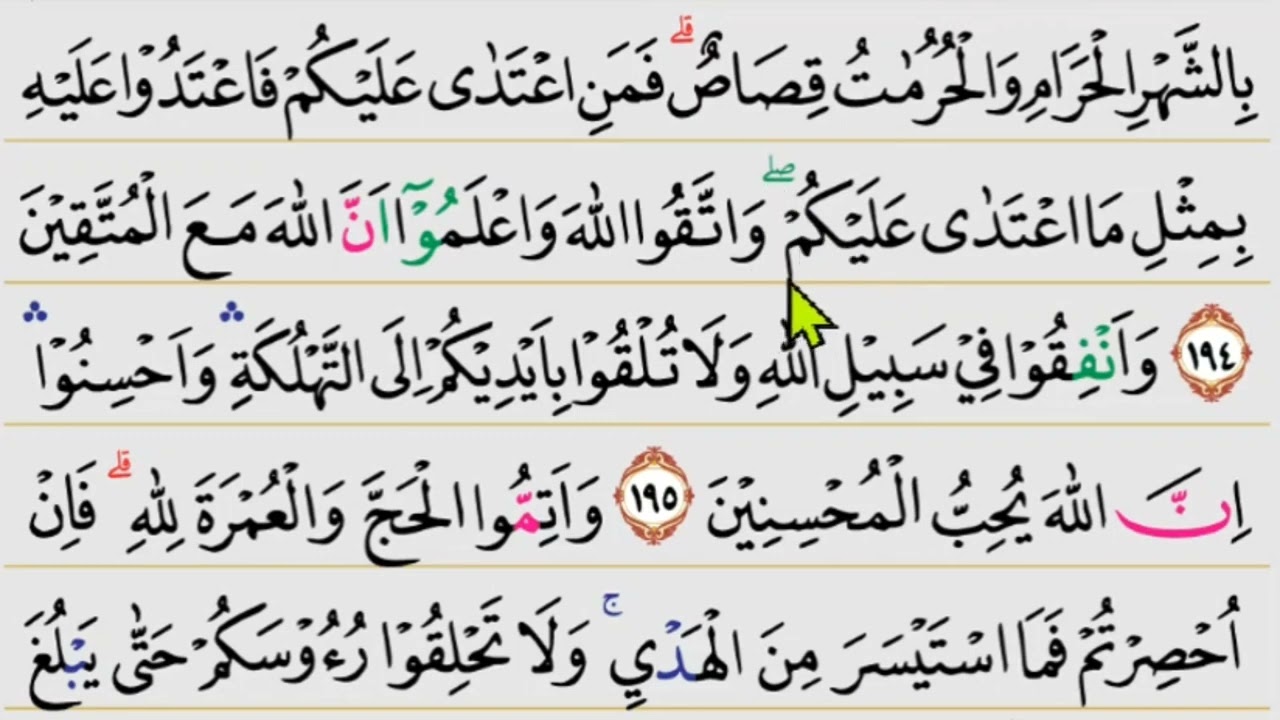 بِالشَّهْرِ الْحَرَامِ وَالْحُرُمٰتُ قِصَاصٌ ۗ فَمَنِ اعْتَدٰى عَلَيْكُمْ فَاعْتَدُوْا عَلَيْهِ
بِمِثْلِ مَا اعْتَدٰى عَلَيْكُمْ ۖ وَاتَّقُوا اللّٰهَ وَاعْلَمُوْٓا اَنَّ اللّٰهَ مَعَ الْمُتَّقِيْنَ
١٩٤ وَاَنْفِقُوْا فِيْ سَبِيْلِ اللّٰهِ وَلَا تُلْقُوْا بِاَيْدِيْكُمْ اِلَى التَّهْلُكَةِ ۛ وَاَحْسِنُوْا ۛ
اِنَّ اللّٰهَ يُحِبُّ الْمُحْسِنِيْنَ ١٩٥ وَاَتِمُّوا الْحَجَّ وَالْعُمْرَةَ لِلّٰهِ ۗ فَاِنْ
اُحْصِرْتُمْ فَمَا اسْتَيْسَرَ مِنَ الْهَدْيِ ۚ وَلَا تَحْلِقُوْا رُءُوْسَكُمْ حَتّٰى يَبْلُغَ